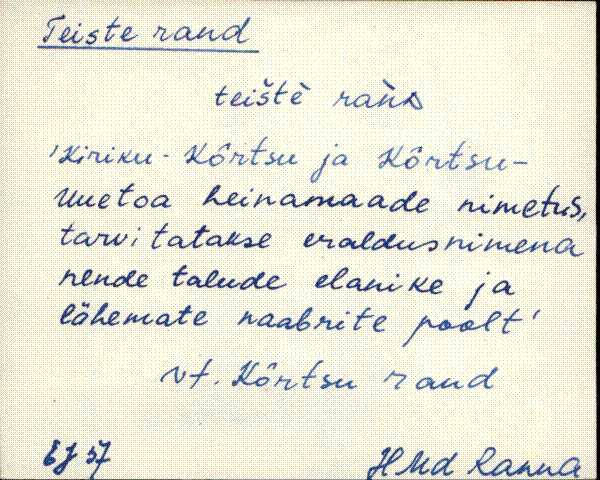 Teiste rand
teištè rànᴅ
'Kiriku-Kôrtsu ja Kôrtsu-
Uuetoa heinamaade nimetus,
tarvitatakse eraldusnimena
nende talude elanike ja
lähemate naabrite poolt'
vt. Kôrtsu rand
EJ 57 HMd Ranna